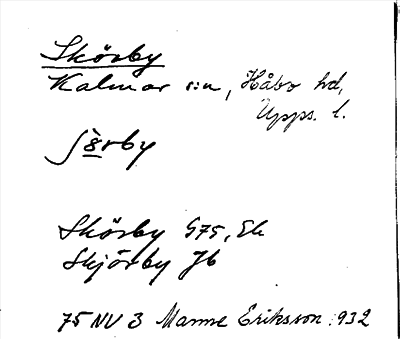 Skörby
Kalmar s:n, Håbo hd,
Upps. l.
Skörby G75, Ek
Skjörby Jb
75 NV 3 Manne Eriksson 1932